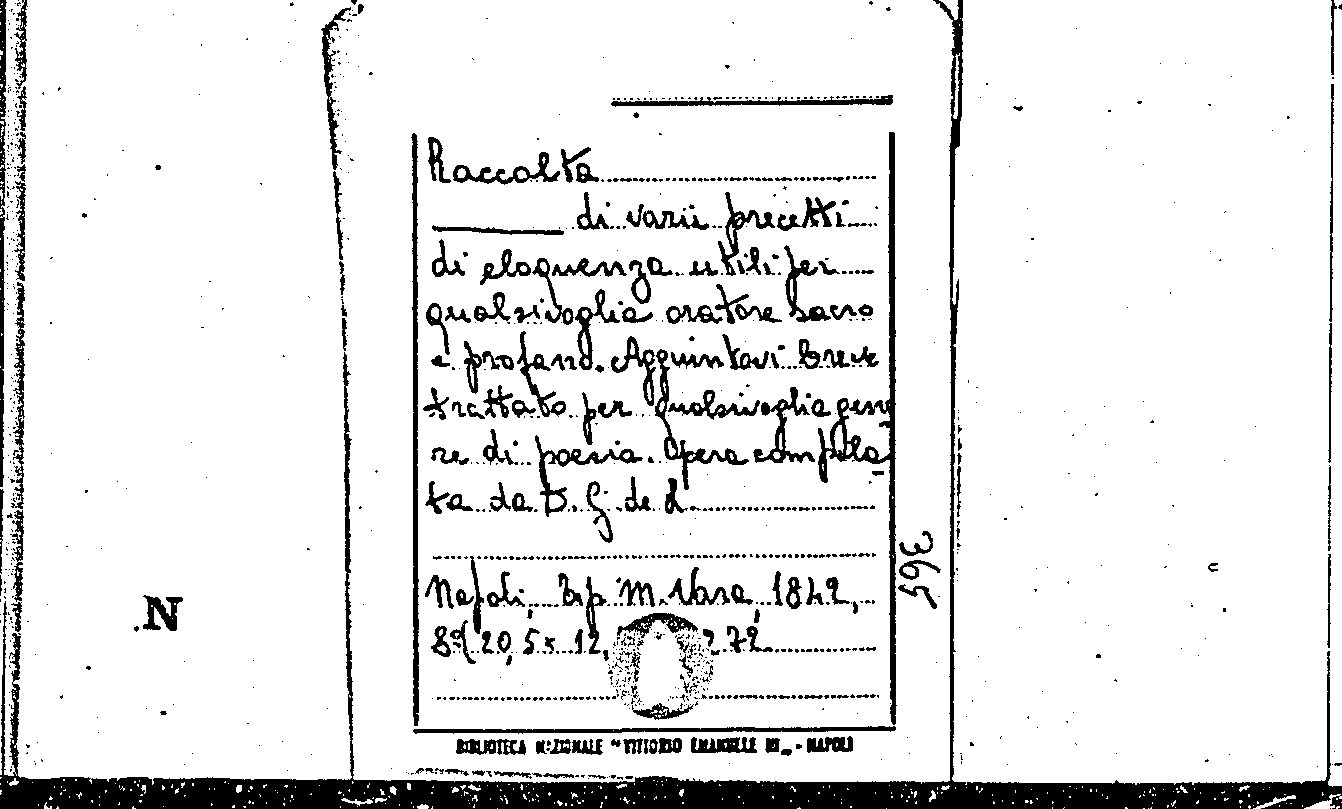 Raccolta
di varii precetti
di eloquenza utili per
qualsivoglia oratore sacro
e profano. Aggiuntavi breve
trattato per qualsivoglia gene
re di poesia. Opera compila-
ta da D. G. de L.
Napoli, Tip. M. Vara, 1842,
8º( 20,5 x 12, 72
365
N
BIBLIOTECA NAZIONALE "VITTORIO EMANUELE III„ - NAPOLI